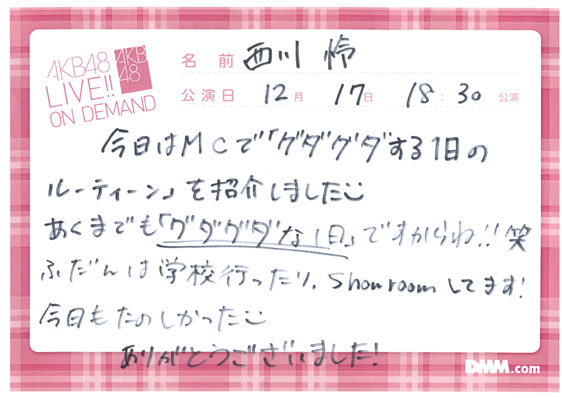 AKB48
LIVE!!
ON DEMAND
AKB
48
名前 西川 怜
公演日 12月 17日 18:30 公演
今日はMCで「グダグダする1日の
ルーティーン」を紹介しました
あくまでも「グダグダな1日」ですからね!!笑
ふだんは学校行ったり、Showroomしてます!
今日もたのしかった
ありがとうございました!
DMM.com